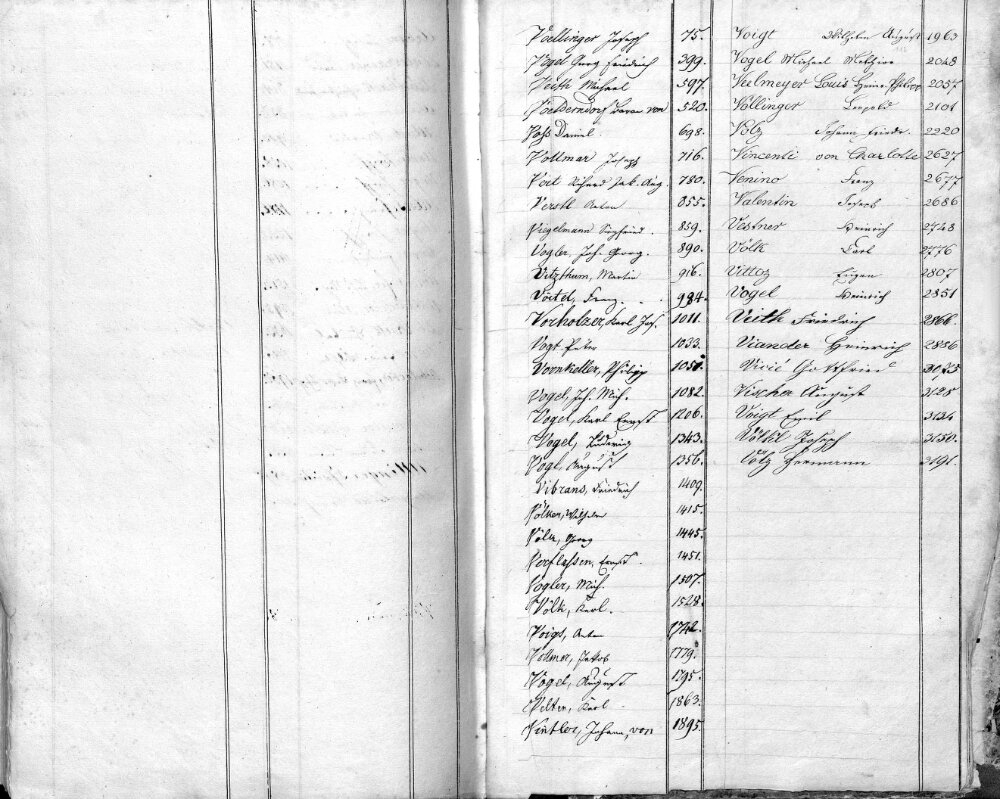 Voellinger Joseph 75.
Vogel Georg Friedrich 399.
Veith Michael 597.
Voelderndorf Baron von 520.
Voß Daniel 698.
Vollmar Joseph 716.
Voit Richard Jak. Aug. 780.
Verstl Anton 855.
Viegelmann Siegfried. 859.
Vogler, Joh. Georg. 890.
Vitzthum, Martin 916.
Voitel, Franz. . . 984.
Vorholzer, Karl Jos. 1011.
Vogt Peter 1033.
Vornkeller, Philipp 1051.
Vogel, Joh. Mich. 1082.
Vogel, Karl Ernst 1206.
Vogel, Ludwig 1343.
Vogl, August 1356.
Vibrans, Friedrich 1409.
Völker, Wilhelm 1415.
Völk, Georg 1445.
Ernst. 1451.
Vogler, Mich. 1507.
Völk, Karl. 1528.
Voigt, Anton 1742.
Vollmer, Jakob 1779.
Vogel, August 1795.
Karl 1863.
Vintler, Johann, von 1895.
Voigt Wilhelm August 1963
Vogel Michael 2048
Veilmeyer Louis 2057
Völlinger Leopold 2101
Volz Johann Friedr. 2220
Vincenti von Charlotte 2627
Venino Franz 2677
Valentin Joseph 2686
Vestner Heinrich 2748
Völk Carl 2776
Vittoz Eugen 2807
Vogel Heinrich 2851
Veith Friedrich 2866.
Viander Heinrich 2886
Vicić Gottfried
Vischer August 3128
Voigt Emil 3134
Völkl Joseph 3150.
Völz Hermann 3191.